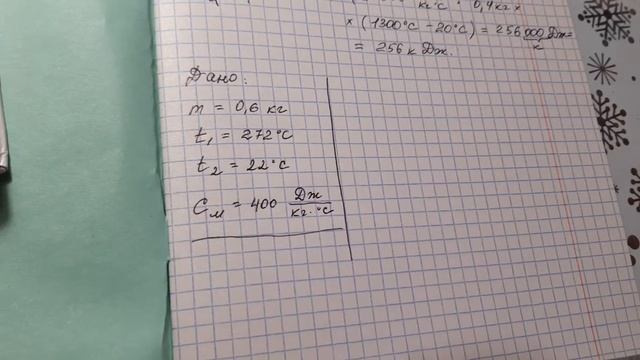 кг°С · 0,4 кг ×
× (1300°С - 20°С) = 256000 Дж =
к
= 256 к Дж.
Дано:
m = 0,6 кг
t₁ = 272°С
t₂ = 22°С
Cм = 400 Дж/кг·°С